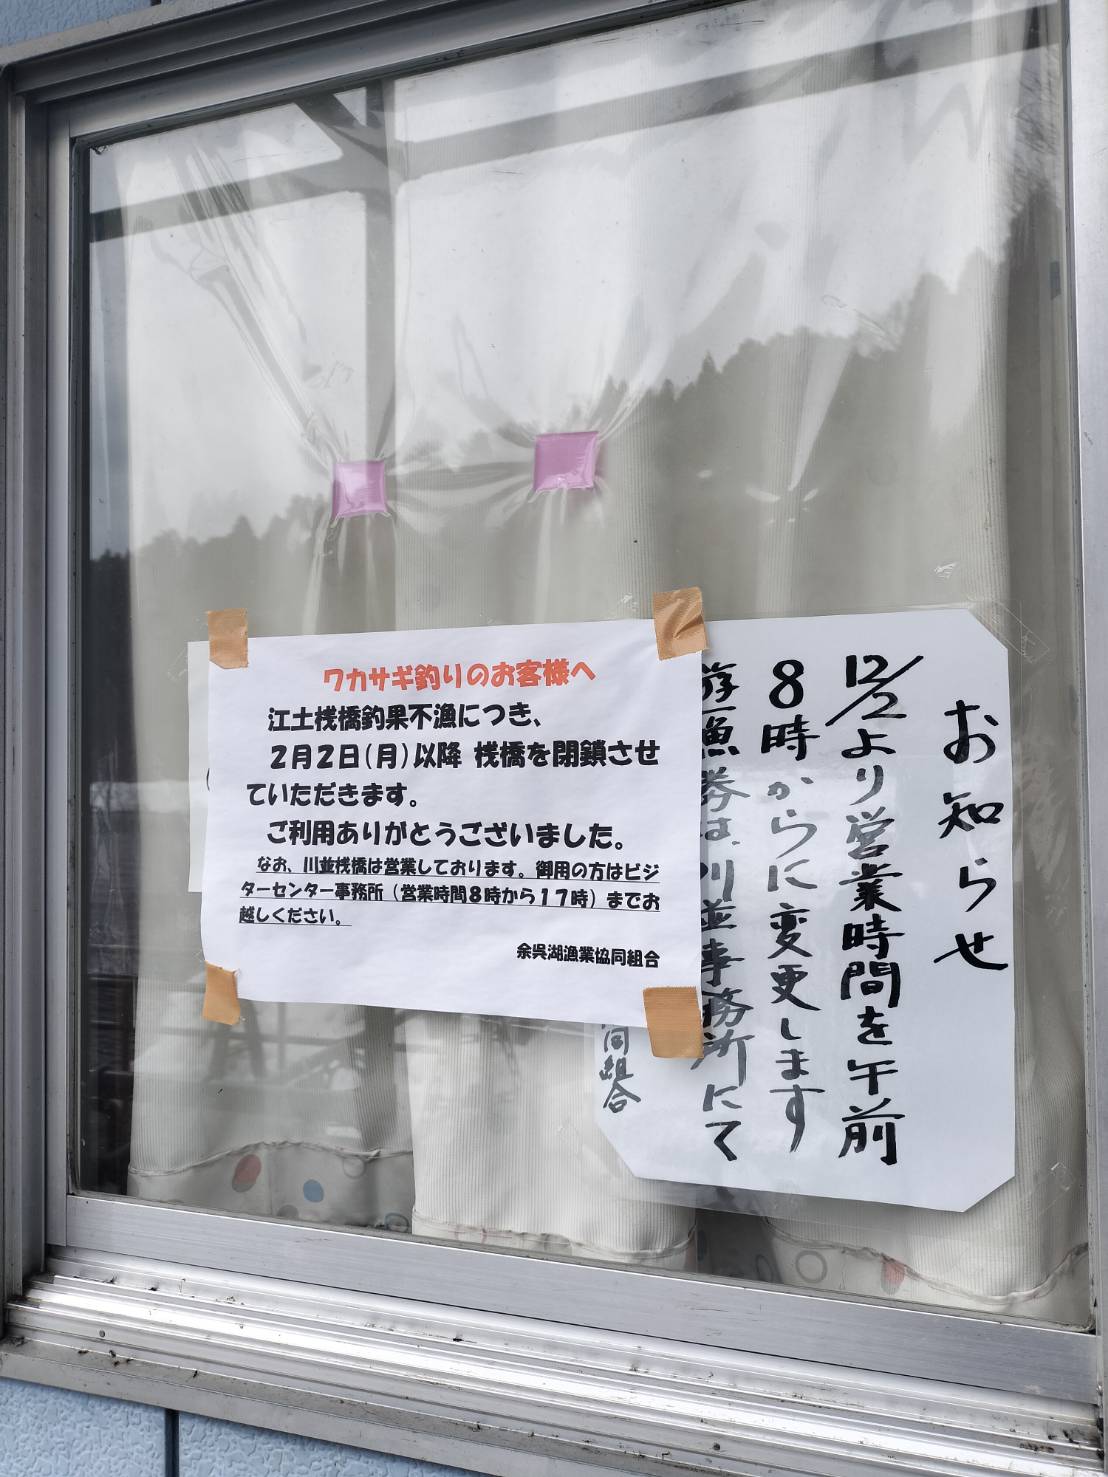 ワカサギ釣りのお客様へ
江土桟橋釣果不漁につき、
２月２日(月)以降 桟橋を閉鎖させ
ていただきます。
ご利用ありがとうございました。
なお、川並桟橋は営業しております。御用の方はビジ
ターセンター事務所（営業時間８時から１７時）までお
越しください。
余呉湖漁業協同組合
お知らせ
12/2より営業時間を午前
8時からに変更します
遊漁券は、川並事務所にて
同組合